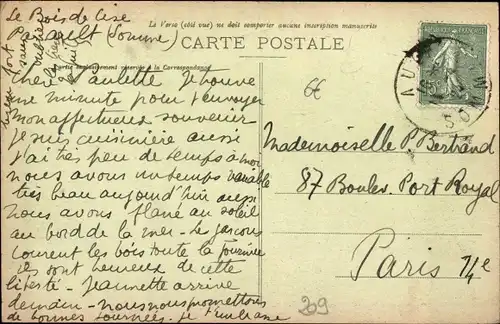 Le Verso (côté vue) ne doit comporter aucune inscription manuscrite
CARTE POSTALE
Le Bois de Cise
Par Ault (Somme)
Chère Paulette je trouve
une minute pour t'envoyer
mon affectueux souvenir
Je suis cuisinière aussi
j'ai très peu de temps à moi
nous avons un temps variable
très beau aujourd'hui aussi
nous avons flané au soleil
au bord de la mer. Le garçons
courent les bois toute la journée
ils sont heureux de cette
liberté - Jeannette arrive
demain - nous nous promettons
de bonnes journées. je t'embrasse
Mademoiselle P. Bertrand
87 Boulev. Port Royal
Paris 14e
209